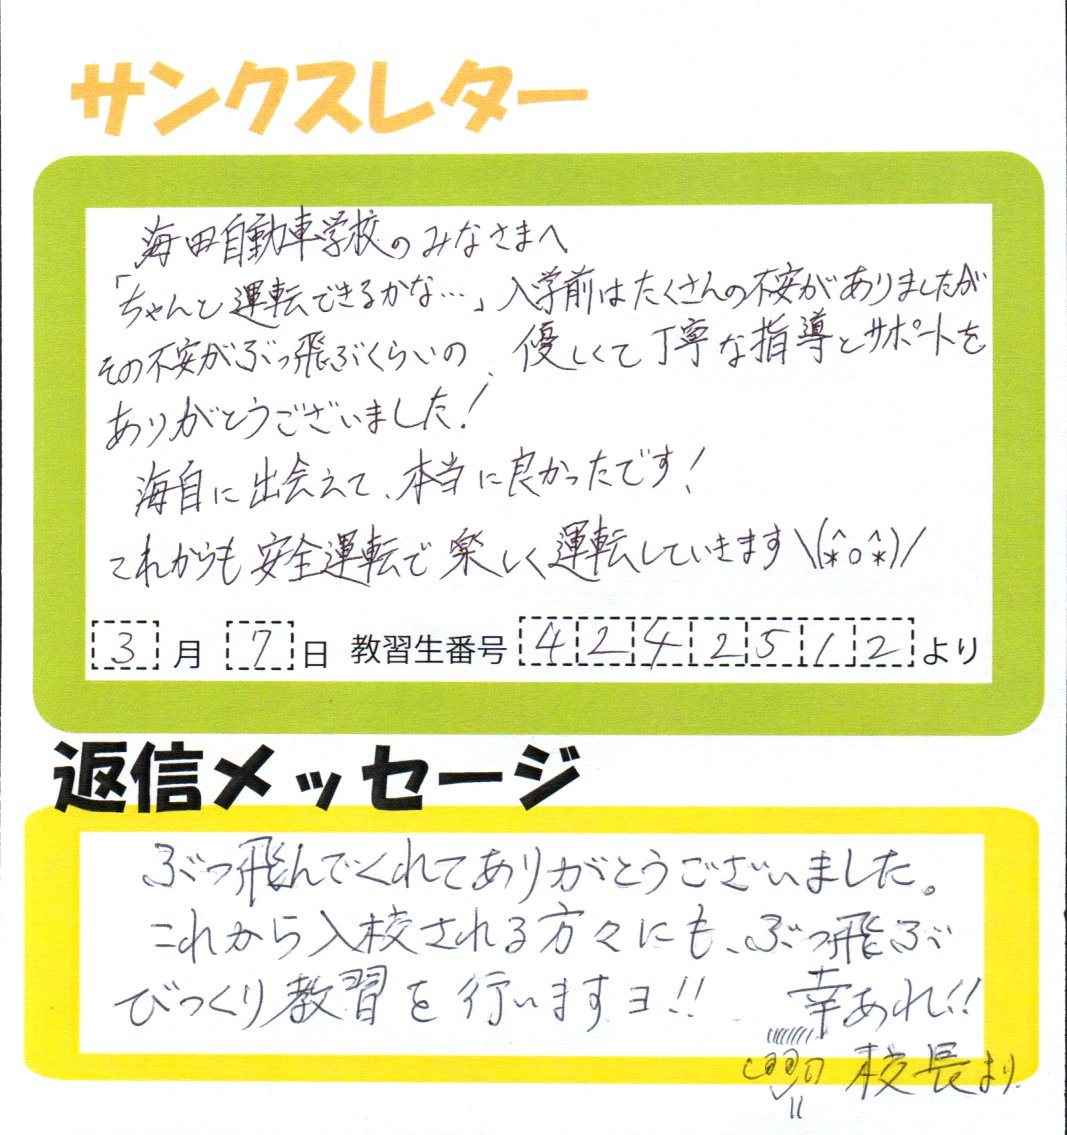 サンクスレター
海田自動車学校のみなさまへ
「ちゃんと運転できるかな…」入学前はたくさんの不安がありましたが
その不安がぶっ飛ぶくらいの、優しくて丁寧な指導とサポートを
ありがとうございました!
海自に出会えて、本当に良かったです!
これからも安全運転で楽しく運転していきます\(*^o^*)/
3月7日 教習生番号 4242512より
返信メッセージ
ぶっ飛んでくれてありがとうございました。
これから入校される方々にも、ぶっ飛ぶ
びっくり教習を行いますヨ!! 幸あれ!!
校長より